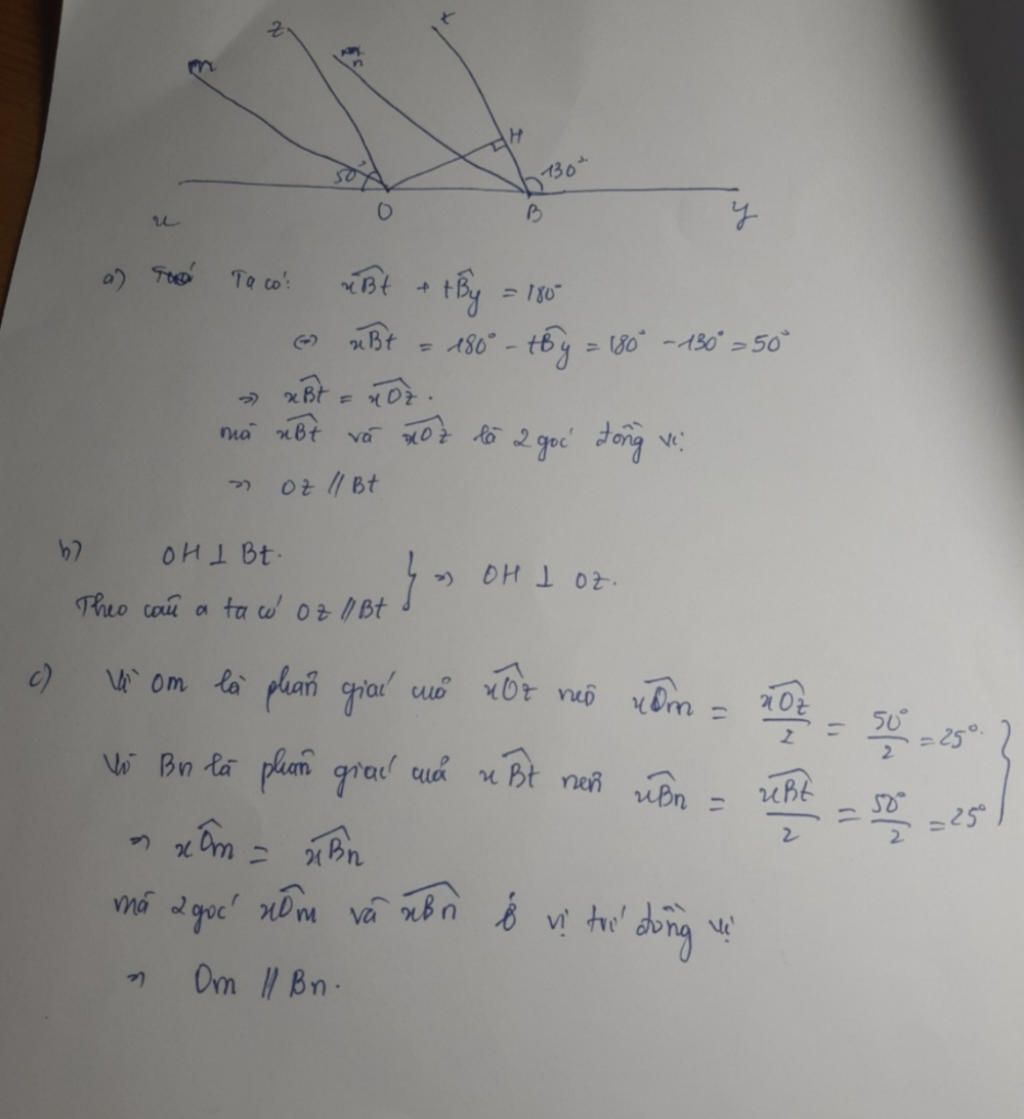 m z n t
50° H 130°
x O B y
a) Ta có: xBt + tBy = 180°
⇔ xBt = 180° - tBy = 180° - 130° = 50°
⇒ xBt = xOz.
mà xBt và xOz là 2 góc đồng vị
⇒ Oz // Bt
b) OH ⊥ Bt.
Theo câu a ta có Oz // Bt } ⇒ OH ⊥ Oz.
c) Vì Om là phân giác của xOz nên xOm = xOz/2 = 50°/2 = 25°.
Vì Bn là phân giác của xBt nên xBn = xBt/2 = 50°/2 = 25° }
⇒ xOm = xBn
mà 2 góc xOm và xBn ở vị trí đồng vị
⇒ Om // Bn.